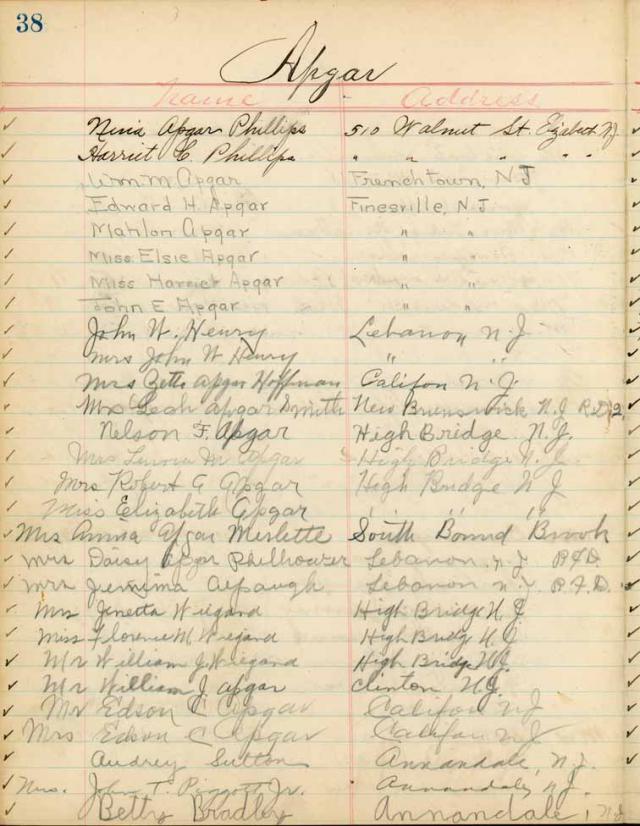 38
Apgar
Name Address
Nina Apgar Phillips 510 Walnut St. Elizabeth NJ
Harriet C. Phillips " " " " "
Wm. M Apgar Frenchtown, NJ
Edward H. Apgar Finesville, NJ
Mahlon Apgar " "
Miss Elsie Apgar " "
Miss Harriet Apgar " "
John E Apgar " "
John W. Henry Lebanon N.J.
Mrs John W Henry " "
Mrs Apgar Hoffman Califon N.J.
Mrs Leah Apgar Smith New Brunswick N.J R.D. 2
Nelson F. Apgar High Bridge N.J.
Mrs M Apgar High Bridge N.J.
Mrs Robert A Apgar High Bridge NJ
Miss Elizabeth Apgar " " "
Mrs Anna Apgar Merlette South Bound Brook
Mrs Daisy Apgar Philhower Lebanon N.J. R.F.D.
Mrs Jemima Alpaugh Lebanon N.J. R.F.D.
Mrs Jenetta Wiegand High Bridge N.J.
Miss Florence M Wiegand High Bridg N.J.
Mr William J. Wiegand High Bridge N.J.
Mr William J. Apgar Clinton, N.J.
Mr Edson C Apgar Califon NJ
Mrs Edson C Apgar Califon NJ
Audrey Sutton Annandale, N.J.
Mrs. John T. Jr. Annandale, N.J.
Betty Bradley Annandale, N.J.